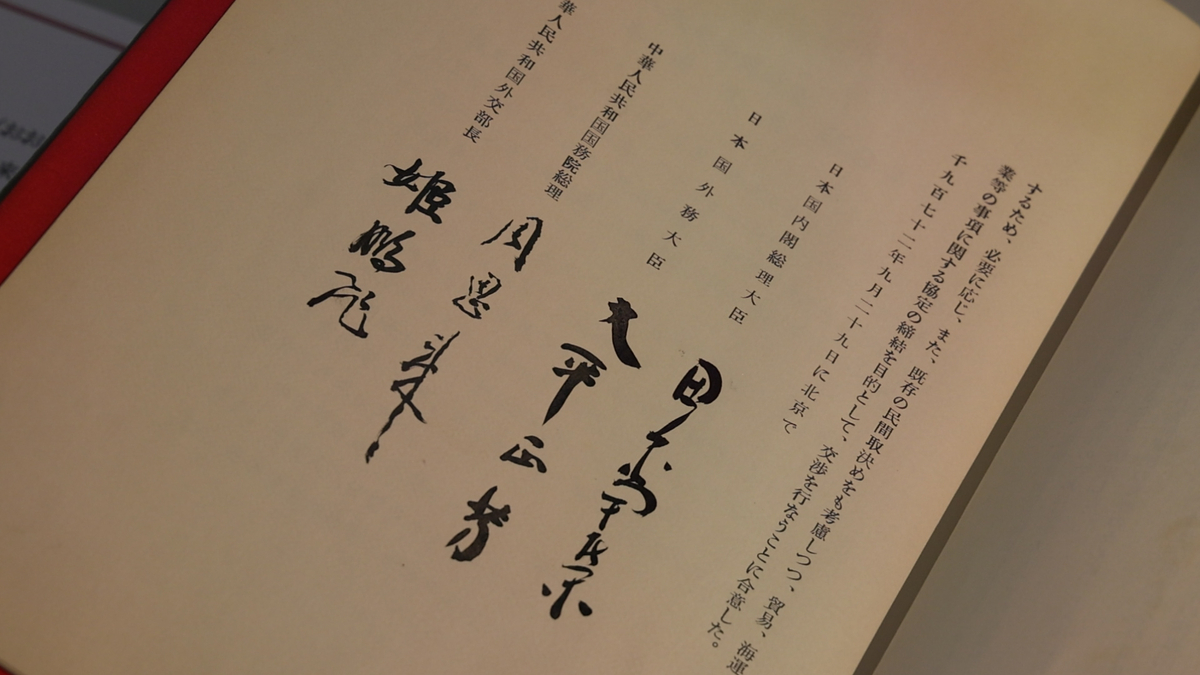 するため、必要に応じ、また、既存の民間取決めをも考慮しつつ、貿易、海運
業等の事項に関する協定の締結を目的として、交渉を行なうことに合意した。
千九百七十二年九月二十九日に北京で
日本国内閣総理大臣
田中角榮
日本国外務大臣
大平正芳
中華人民共和国国務院総理
周恩来
華人民共和国外交部長
姬鵬飛